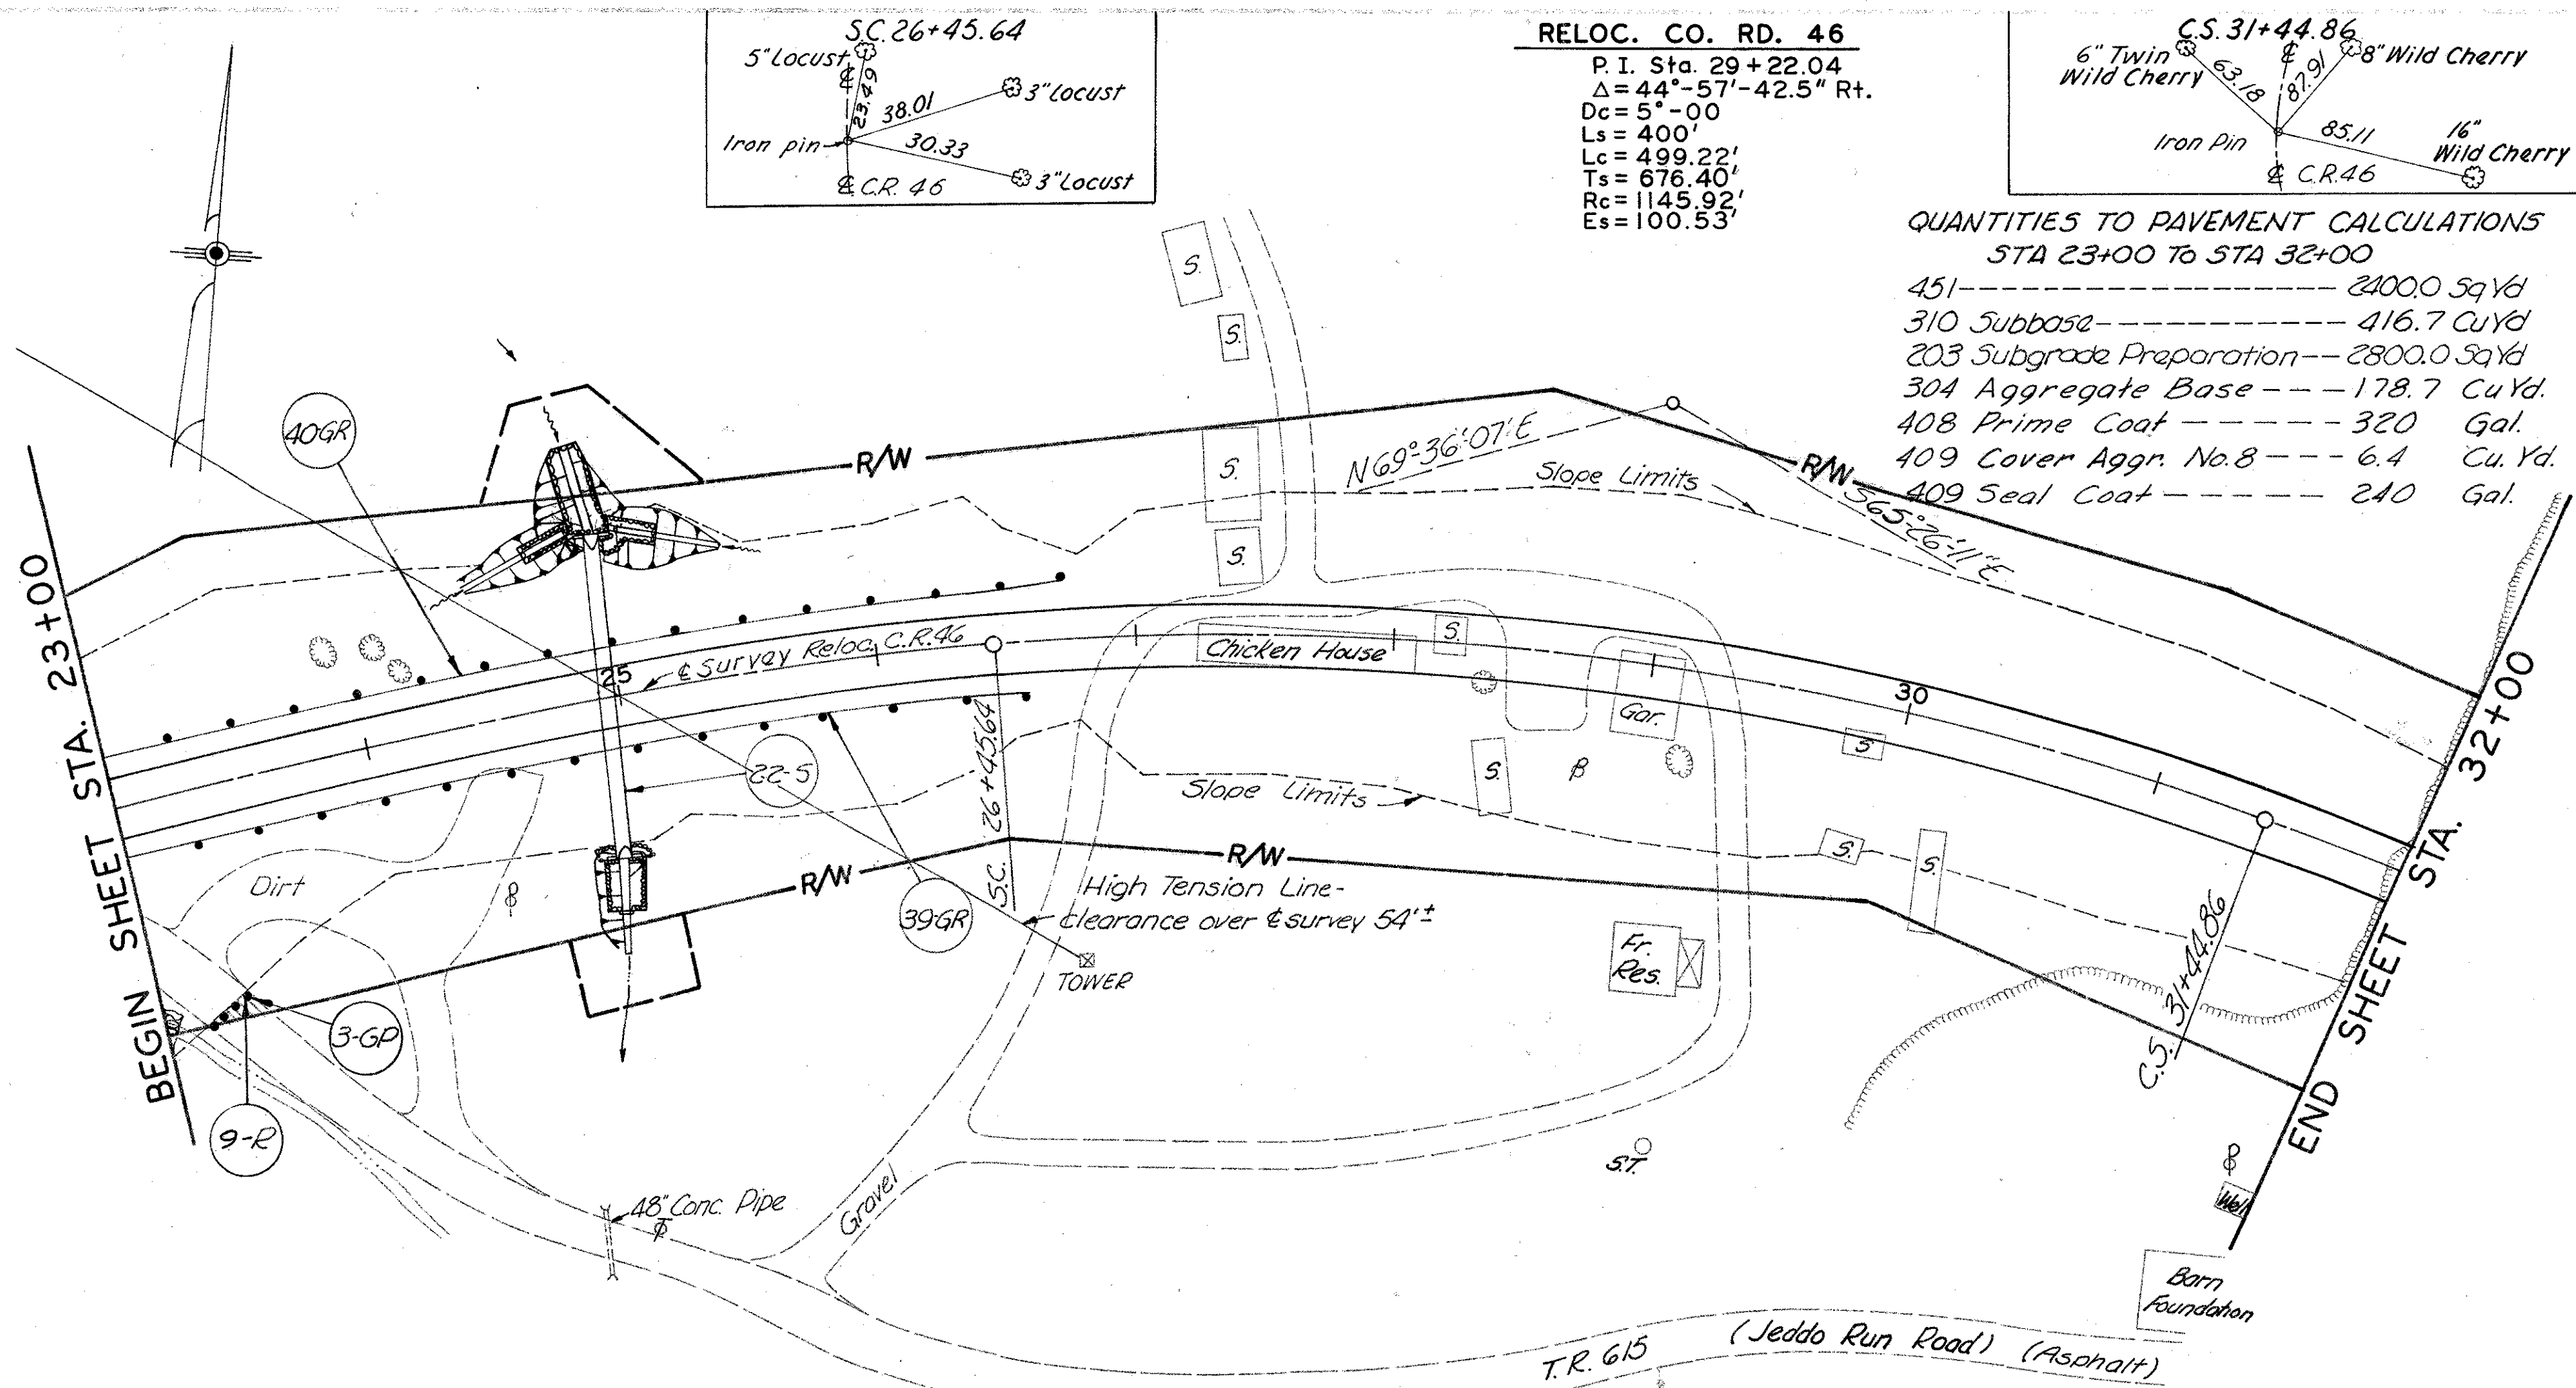 S.C. 26+45.64
5" Locust
℄
23.49
38.01
3" Locust
Iron pin
30.33
3" Locust
℄ C.R. 46
RELOC. CO. RD. 46
P. I. Sta. 29+22.04
Δ = 44°-57'-42.5" Rt.
Dc = 5°-00
Ls = 400'
Lc = 499.22'
Ts = 676.40'
Rc = 1145.92'
Es = 100.53'
C.S. 31+44.86
6" Twin
Wild Cherry
℄
8" Wild Cherry
63.18
87.91
Iron Pin
85.11
16"
Wild Cherry
℄ C.R. 46
QUANTITIES TO PAVEMENT CALCULATIONS
STA 23+00 To STA 32+00
451------------------2400.0 Sq Yd
310 Subbase------------416.7 Cu Yd
203 Subgrade Preparation--2800.0 Sq Yd
304 Aggregate Base---178.7 Cu Yd.
408 Prime Coat-----320 Gal.
409 Cover Aggr. No. 8---6.4 Cu. Yd.
409 Seal Coat-----240 Gal.
S.
S.
40GR
R/W
S.
S.
N69°-36'-07"E
Slope Limits
R/W
S65°-26'-11"E
BEGIN SHEET STA. 23+00
℄ Survey Reloc. C.R. 46
25
Chicken House
S.
Gar.
30
S.
S.
22-S
S.C. 26+45.64
Slope Limits
S.
S.
Dirt
R/W
R/W
39-GR
High Tension Line-
Clearance over ℄ survey 54'±
TOWER
Fr.
Res.
C.S. 31+44.86
END SHEET STA. 32+00
3-GP
9-R
48" Conc. Pipe
Gravel
S.T.
Well
Barn
Foundation
T.R. 615 (Jeddo Run Road) (Asphalt)